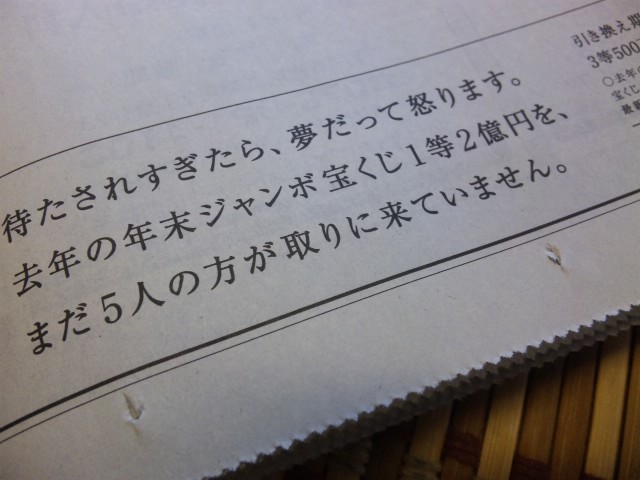 待たされすぎたら、夢だって怒ります。
去年の年末ジャンボ宝くじ1等2億円を、
まだ5人の方が取りに来ていません。
引き換え期
3等500万
○去年の
宝くじ
最